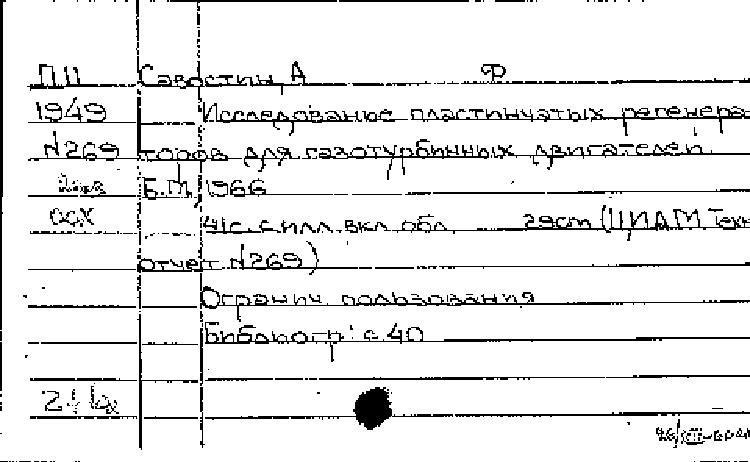 ПП Савостин, А Ф
1949 Исследование пластинчатых регенера
N269 торов для газотурбинных двигателей.
Б.М, 1966
ООХ 41с. с илл. вкл. обл. 29см (ЦИАМ Техн
отчет N269)
Огранич. пользования
Библиогр: с 40